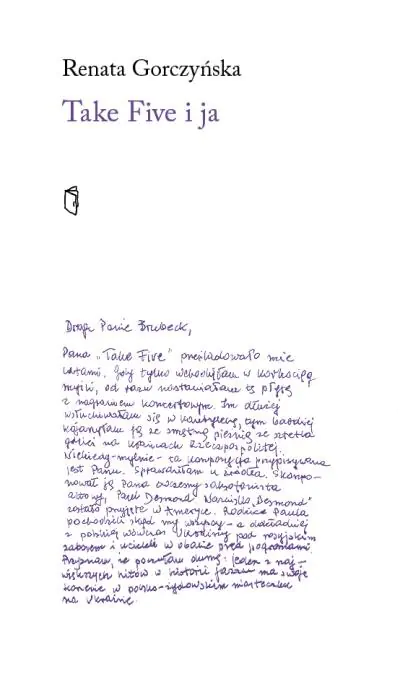 Renata Gorczyńska
Take Five i ja
Drogi Panie Brubeck,
Pana „Take Five” prześladowało mnie
latami. Gdy tylko wchodziłam w
myśli, od razu nastawiałam tę płytę
z nagraniem koncertowym. Im dłużej
wsłuchiwałam się w kantylenę, tym bardziej
kojarzyłam ją ze smętną pieśnią ze sztetla
gdzieś na krańcach Rzeczpospolitej.
Niekiedy – mylnie – ta kompozycja przypisywana
jest Panu. Sprawdziłam u źródła. Skompo-
nował ją Pana ówczesny saksofonista
altowy, Paul Desmond. Nazwisko „Desmond”
zostało przyjęte w Ameryce. Rodzice Paula
pochodzili skąd my wszyscy – a dokładniej
z polskiej wówczas Ukrainy pod rosyjskim
zaborem i uciekli w obawie przed pogromami.
Przyznam, że poczułam dumę: jeden z naj-
większych hitów w historii jazzu ma swoje
korzenie w polsko-żydowskim miasteczku
na Ukrainie.